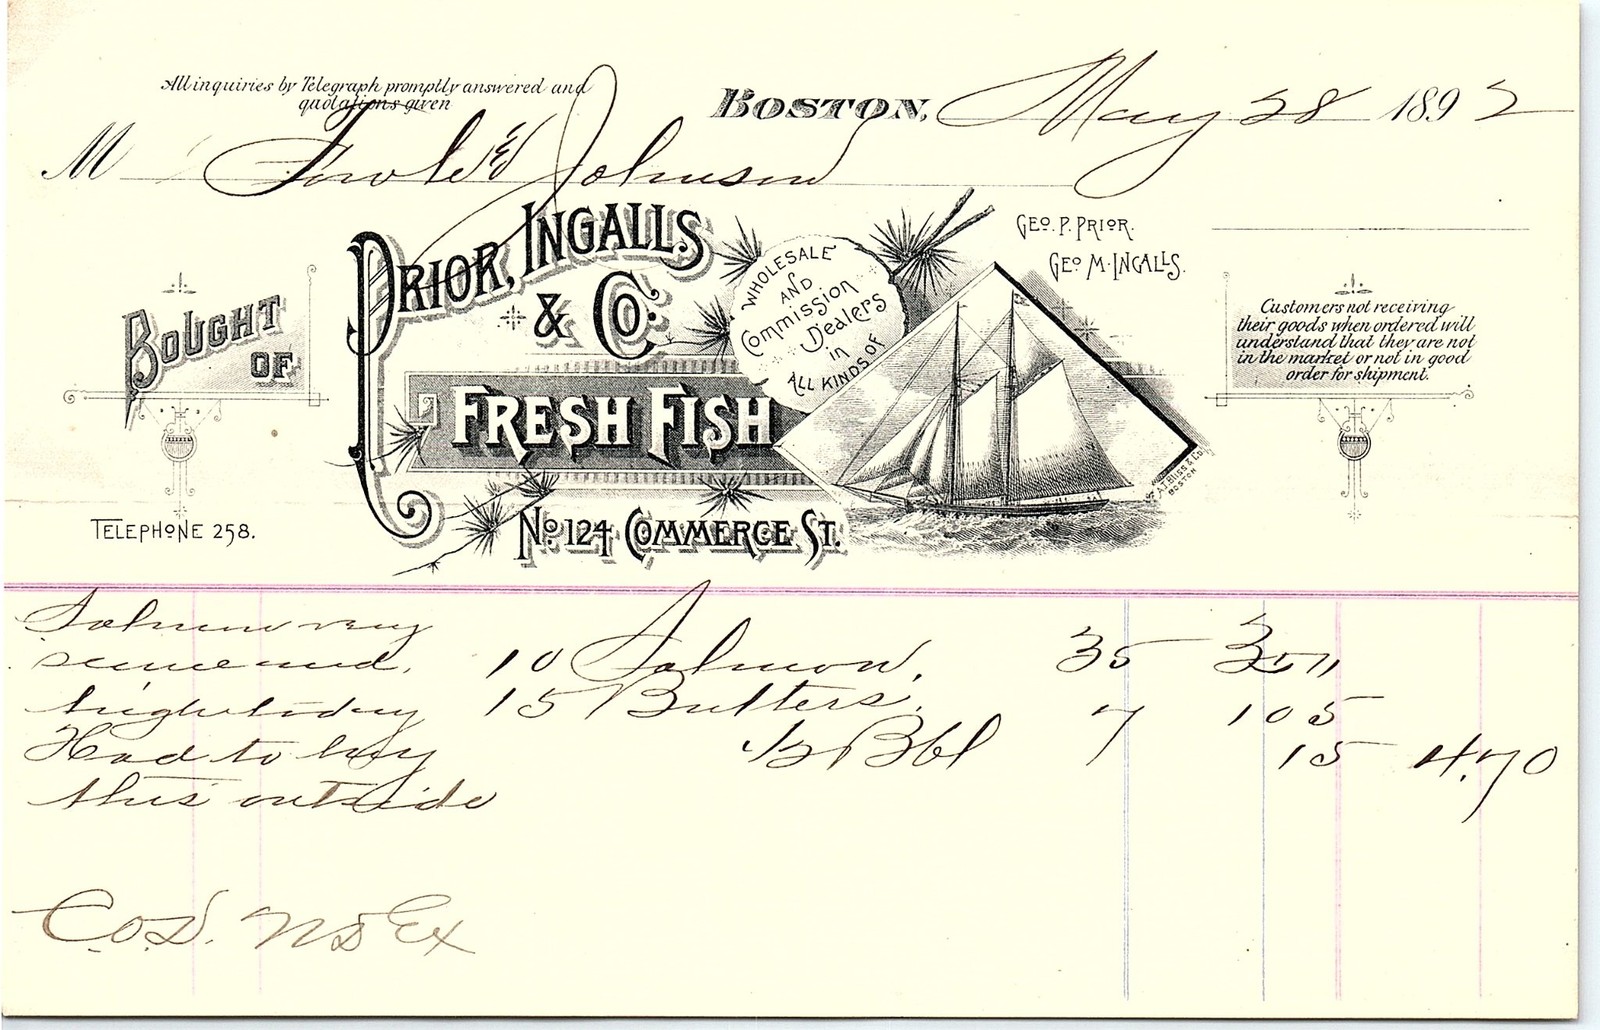 All inquiries by Telegraph promptly answered and
quotations given
BOSTON, May 28 1892
M Fowle & Johnson
PRIOR, INGALLS
& Co.
FRESH FISH
No. 124 COMMERCE ST.
WHOLESALE
AND
Commission
Dealers
in
ALL KINDS OF
GEO. P. PRIOR.
GEO M. INGALLS.
BOUGHT
OF
Customers not receiving
their goods when ordered will
understand that they are not
in the market or not in good
order for shipment.
A.T. BLISS & CO.
BOSTON
TELEPHONE 258.
Salmon very
scarce and.
high today
Had to buy
this outside
10 Salmon. 35 350
15 Butters. 7 105
1/2 Bbl 15 4.70
C.O.D. Ex